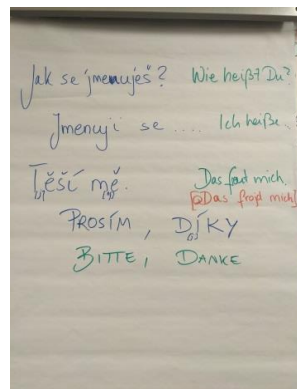 Jak se jmenuješ? Wie heißt Du?
Jmenuji se .... Ich heiße
Těší mě. Das freut mich.
[Das frojt mich]
PROSÍM, DÍKY
BITTE, DANKE